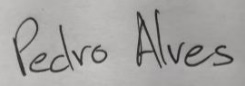 Pedro Alves